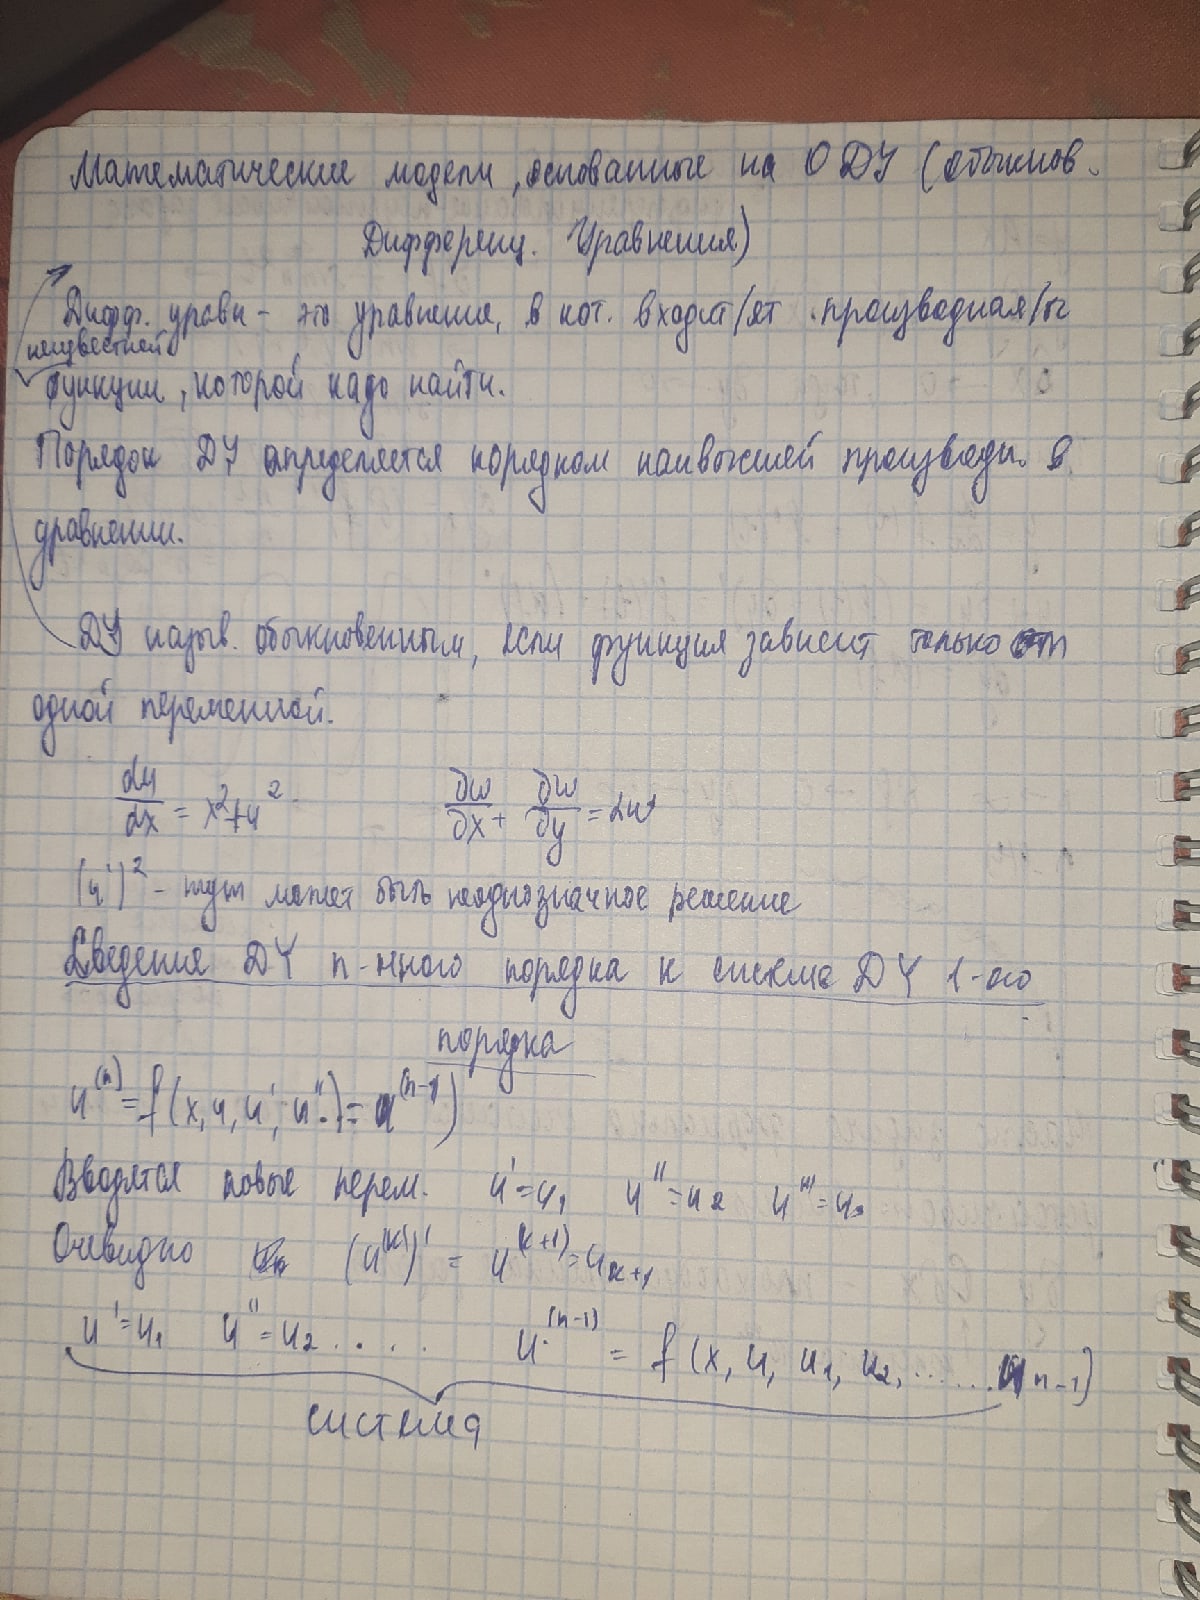 Математические модели, основанные на ОДУ (обыкнов.
Дифференц. Уравнения)
Дифф. уравн - это уравнение, в кот. входит/ят производная/ые
неизвестной
функции, которой надо найти.
Порядок ДУ определяется порядком наивысшей производн. в
уравнении.
ДУ назыв. обыкновенным, если функция зависит только от
одной переменной.
du/dx = x²+u² ∂w/∂x + ∂w/∂y = 2w
(u')² - тут может быть неоднозначное решение
Сведение ДУ n-нного порядка к системе ДУ 1-ого
порядка
u⁽ⁿ⁾ = f(x, u, u', u''..) = u⁽ⁿ⁻¹⁾)
Вводятся новые перем. u' = u₁ u'' = u₂ u''' = u₃
Очевидно (u⁽ᵏ⁾)' = u⁽ᵏ⁺¹⁾ = uₖ₊₁
u' = u₁ u'' = u₂ ..... u⁽ⁿ⁻¹⁾ = f(x, u, u₁, u₂, ...... uₙ₋₁)
система